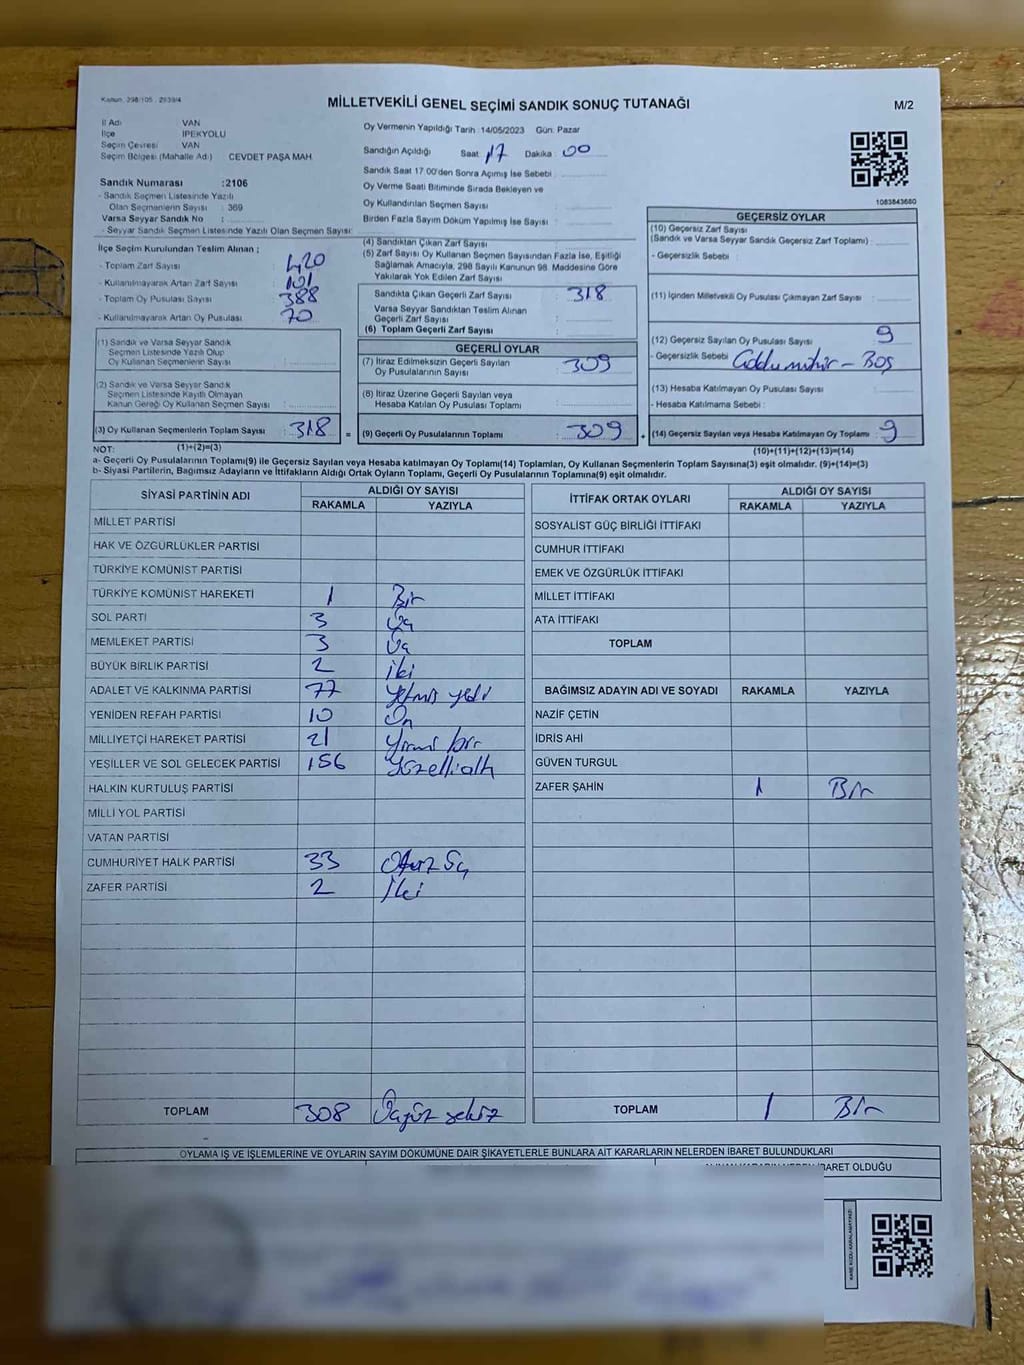 Kanun: 298/105 , 2839/4
MİLLETVEKİLİ GENEL SEÇİMİ SANDIK SONUÇ TUTANAĞI
M/2
İl Adı VAN
İlçe İPEKYOLU
Seçim Çevresi VAN
Seçim Bölgesi (Mahalle Adı) CEVDET PAŞA MAH
Sandık Numarası :2106
- Sandık Seçmen Listesinde Yazılı
Olan Seçmenlerin Sayısı : 369
Varsa Seyyar Sandık No :
- Seyyar Sandık Seçmen Listesinde Yazılı Olan Seçmen Sayısı:
Oy Vermenin Yapıldığı Tarih :14/05/2023 Gün: Pazar
Sandığın Açıldığı Saat: 17 Dakika : 00
Sandık Saat 17.00'den Sonra Açımış İse Sebebi :
Oy Verme Saati Bitiminde Sırada Bekleyen ve
Oy Kullandırılan Seçmen Sayısı :
Birden Fazla Sayım Döküm Yapılmış İse Sayısı :
1083843660
İlçe Seçim Kurulundan Teslim Alınan ;
- Toplam Zarf Sayısı : 420
- Kullanılmayarak Artan Zarf Sayısı : 101
- Toplam Oy Pusulası Sayısı : 388
- Kullanılmayarak Artan Oy Pusulası : 70
(1) Sandık ve Varsa Seyyar Sandık
Seçmen Listesinde Yazılı Olup
Oy Kullanan Seçmenlerin Sayısı :
(2) Sandık ve Varsa Seyyar Sandık
Seçmen Listesinde Kayıtlı Olmayan
Kanun Gereği Oy Kullanan Seçmen Sayısı :
(3) Oy Kullanan Seçmenlerin Toplam Sayısı : 318
(4) Sandıktan Çıkan Zarf Sayısı :
(5) Zarf Sayısı Oy Kullanan Seçmen Sayısından Fazla İse, Eşitliği
Sağlamak Amacıyla, 298 Sayılı Kanunun 98. Maddesine Göre
Yakılarak Yok Edilen Zarf Sayısı :
Sandıkta Çıkan Geçerli Zarf Sayısı : 318
Varsa Seyyar Sandıktan Teslim Alınan
Geçerli Zarf Sayısı :
(6) Toplam Geçerli Zarf Sayısı :
GEÇERLİ OYLAR
(7) İtiraz Edilmeksizin Geçerli Sayılan
Oy Pusulalarının Sayısı : 309
(8) İtiraz Üzerine Geçerli Sayılan veya
Hesaba Katılan Oy Pusulası Toplamı :
= (9) Geçerli Oy Pusulalarının Toplamı : 309
GEÇERSİZ OYLAR
(10) Geçersiz Zarf Sayısı
(Sandık ve Varsa Seyyar Sandık Geçersiz Zarf Toplamı) :
- Geçersizlik Sebebi :
(11) İçinden Milletvekili Oy Pusulası Çıkmayan Zarf Sayısı :
(12) Geçersiz Sayılan Oy Pusulası Sayısı : 9
- Geçersizlik Sebebi : – Boş
(13) Hesaba Katılmayan Oy Pusulası Sayısı :
- Hesaba Katılmama Sebebi :
+ (14) Geçersiz Sayılan veya Hesaba Katılmayan Oy Toplamı : 9
NOT: (1)+(2)=(3)
(10)+(11)+(12)+(13)=(14)
a- Geçerli Oy Pusulalarının Toplamı(9) ile Geçersiz Sayılan veya Hesaba katılmayan Oy Toplamı(14) Toplamları, Oy Kullanan Seçmenlerin Toplam Sayısına(3) eşit olmalıdır. (9)+(14)=(3)
b- Siyasi Partilerin, Bağımsız Adayların ve İttifakların Aldığı Ortak Oyların Toplamı, Geçerli Oy Pusulalarının Toplamına(9) eşit olmalıdır.
SİYASİ PARTİNİN ADI ALDIĞI OY SAYISI
RAKAMLA YAZIYLA
MİLLET PARTİSİ
HAK VE ÖZGÜRLÜKLER PARTİSİ
TÜRKİYE KOMÜNİST PARTİSİ
TÜRKİYE KOMÜNİST HAREKETİ 1 Bir
SOL PARTİ 3 Üç
MEMLEKET PARTİSİ 3 Üç
BÜYÜK BİRLİK PARTİSİ 2 iki
ADALET VE KALKINMA PARTİSİ 77 yetmiş yedi
YENİDEN REFAH PARTİSİ 10 On
MİLLİYETÇİ HAREKET PARTİSİ 21 yirmi bir
YEŞİLLER VE SOL GELECEK PARTİSİ 156 yüzellialtı
HALKIN KURTULUŞ PARTİSİ
MİLLİ YOL PARTİSİ
VATAN PARTİSİ
CUMHURİYET HALK PARTİSİ 33 Otuz Üç
ZAFER PARTİSİ 2 İki
TOPLAM 308 Üçyüz sekiz
İTTİFAK ORTAK OYLARI ALDIĞI OY SAYISI
RAKAMLA YAZIYLA
SOSYALİST GÜÇ BİRLİĞİ İTTİFAKI
CUMHUR İTTİFAKI
EMEK VE ÖZGÜRLÜK İTTİFAKI
MİLLET İTTİFAKI
ATA İTTİFAKI
TOPLAM
BAĞIMSIZ ADAYIN ADI VE SOYADI RAKAMLA YAZIYLA
NAZİF ÇETİN
İDRİS AHİ
GÜVEN TURGUL
ZAFER ŞAHİN 1 Bir
TOPLAM 1 Bir
OYLAMA İŞ VE İŞLEMLERİNE VE OYLARIN SAYIM DÖKÜMÜNE DAİR ŞİKAYETLERLE BUNLARA AİT KARARLARIN NELERDEN İBARET BULUNDUKLARI
İBARET OLDUĞU
KARE KODU KARALAMAYINIZ!